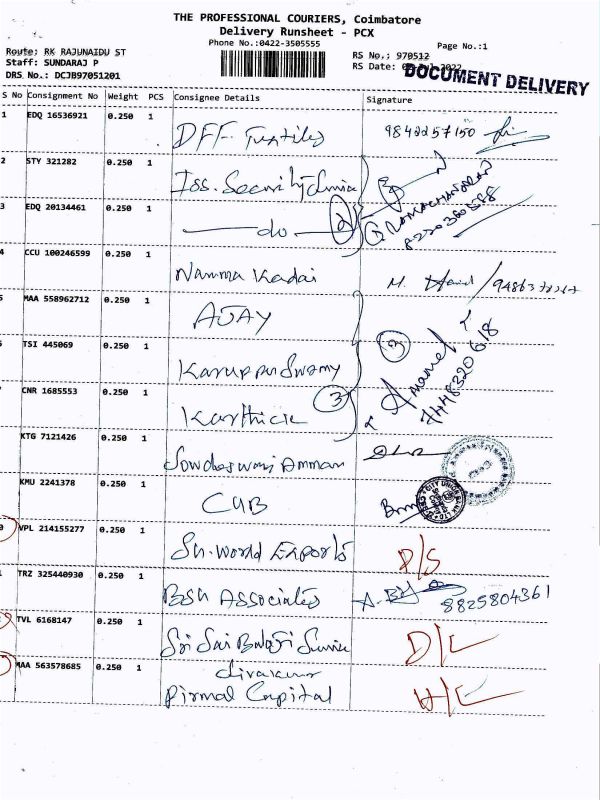 THE PROFESSIONAL COURIERS, Coimbatore
Delivery Runsheet - PCX
Phone No.:0422-3505555
Page No.:1
Route: RK RAJUNAIDU ST
RS No.: 970512
Staff: SUNDARAJ P
RS Date:
DOCUMENT DELIVERY
DRS No.: DCJB97051201
S No Consignment No Weight PCS Consignee Details Signature
1 EDQ 16536921 0.250 1 DFF. Textiles 9842257150
2 STY 321282 0.250 1 Iss. Security Service
3 EDQ 20134461 0.250 1 do 2 G RAMACHANDRAN
CCU 100246599 0.250 1 Namma Kadai
MAA 558962712 0.250 1 AJAY
TSI 445069 0.250 1 Karuppuswamy 3
7448320618
CNR 1685553 0.250 1 Karthick 3
KTG 7121426 0.250 1 Sowdeswari Amman
KMU 2241378 0.250 1 CUB
VPL 214155277 0.250 1 Sh. World Exports D/S
TRZ 325440930 0.250 1 BSH Associates 8825804361
TVL 6168147 0.250 1 Sri Sai Balaji Service D/L
MAA 563578685 0.250 1 Pirmal Capital